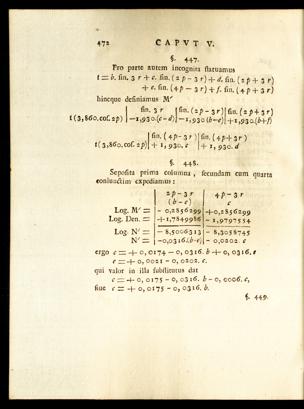 472 CAPVT V.
§. 447.
Pro parte autem incognita statuamus
t = b. sin. 3 r + c. sin. (2 p − 3 r) + d. sin. (2 p + 3 r)
+ e. sin. (4 p − 3 r) + f. sin. (4 p + 3 r)
hincque definiamus M′
| sin. 3 r | sin. (2 p − 3 r) | sin. (2 p + 3 r)
t (3,860. cos. 2 p) | − 1,930. (c − d) | − 1,930. (b − e) | + 1,930. (b + f)
| sin. (4 p − 3 r) | sin. (4 p + 3 r)
t (3,860. cos. 2 p) | + 1, 930. c | + 1, 930. d
§. 448.
Seposita prima columna, secundam cum quarta
coniunctim expediamus:
| 2 p − 3 r | 4 p − 3 r
| (b − e) | c
Log. M′ = | − 0,2856299 | + 0,2856299
Log. Den. = | + 1,7849986 | − 1,9797554
Log. N′ = | − 8,5006313 | − 8,3058745
N′ = | − 0,0316. (b − e) | − 0,0202. c
ergo c = + 0, 0174 − 0, 0316. b + 0, 0316. e
e = + 0, 0021 − 0, 0202. c.
qui valor in illa substitutus dat
c = + 0, 0175 − 0, 0316. b − 0, 0006. c,
siue c = + 0, 0175 − 0, 0316. b.
§. 449.